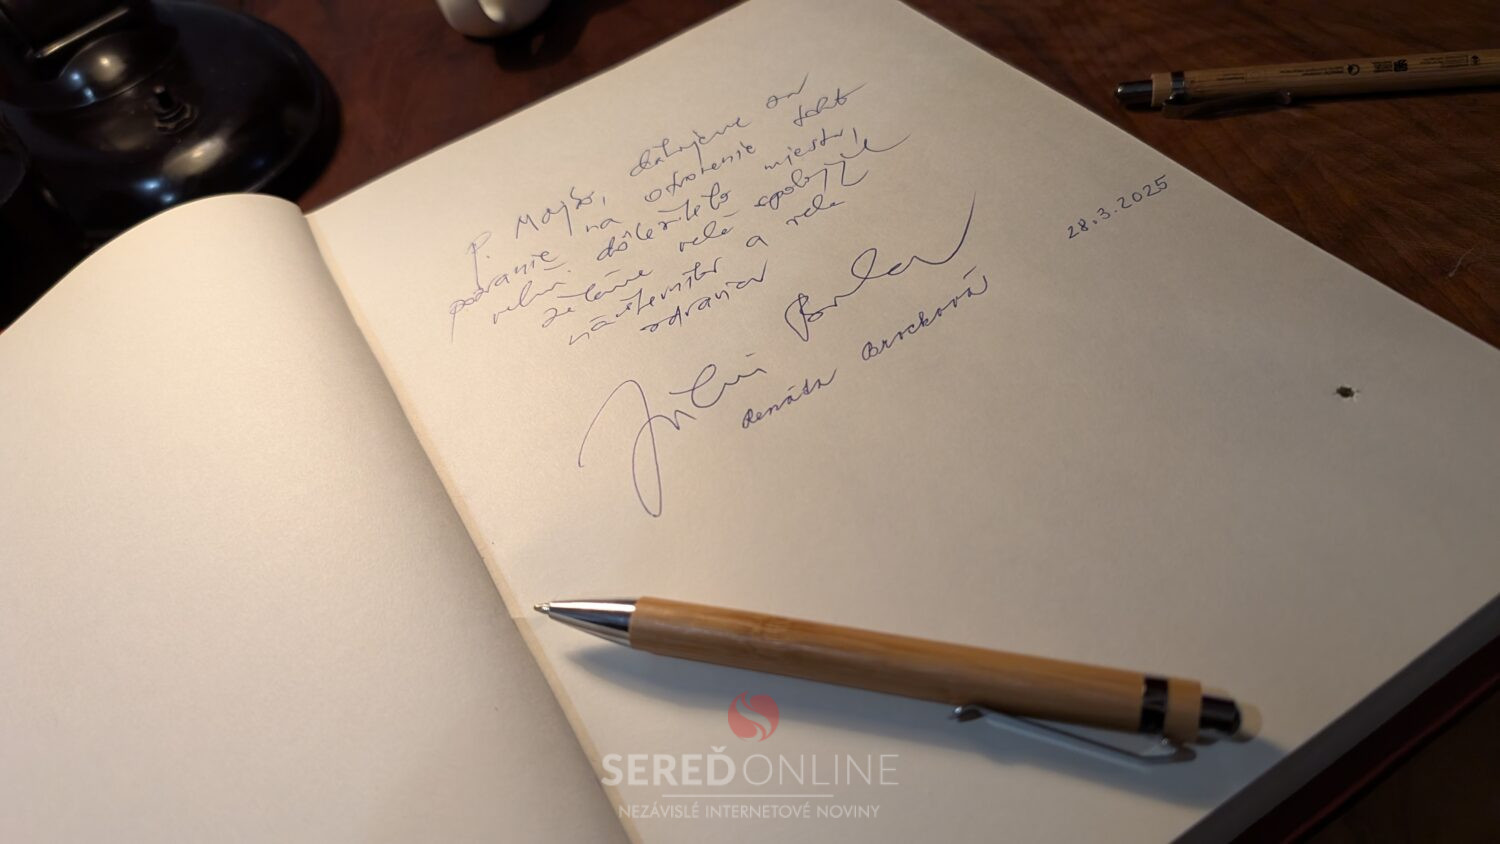 P. Majšo, ďakujeme za
pozvanie na otvorenie tohto
veľmi dôležitého miesta,
želáme veľa spokojných
návštevníkov a veľa
zdravia
28.3.2025
Július
Renáta Brocková
SEREĎ ONLINE
NEZÁVISLÉ INTERNETOVÉ NOVINY